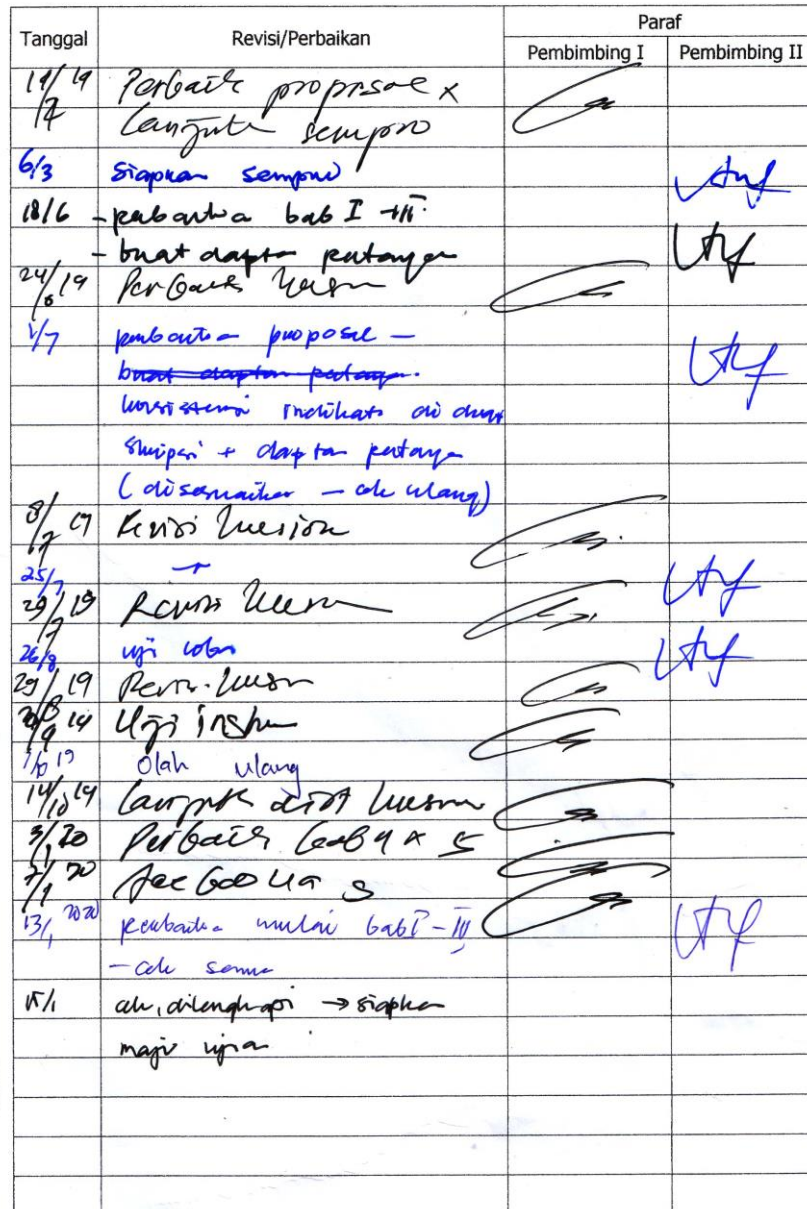 Tanggal Revisi/Perbaikan Paraf
Pembimbing I Pembimbing II
Perbaiki proposal
Lanjutkan sempro
6/3 Siapkan sempro
18/6 - perbaikan bab I - III
- buat daftar pertanyaan
24/6 19 Perbaiki
1/7 perbaikan proposal -
buat daftar pertanyaan.
konsistensi indikator di
skripsi + daftar pertanyaan
(disesuaikan - cek ulang)
Revisi
25/7
29/7 19 Revisi
26/8 uji coba
29/8 19 Revisi
Uji
1/10 19 Olah ulang
14/10 19 Lanjutkan
3/1 20 Perbaiki bab 4 & 5
7/1 20 Acc bab 4 & 5
13/1 2020 perbaikan mulai bab I - IV
- cek semua
15/1 cek, dilengkapi → siapkan
maju ujian